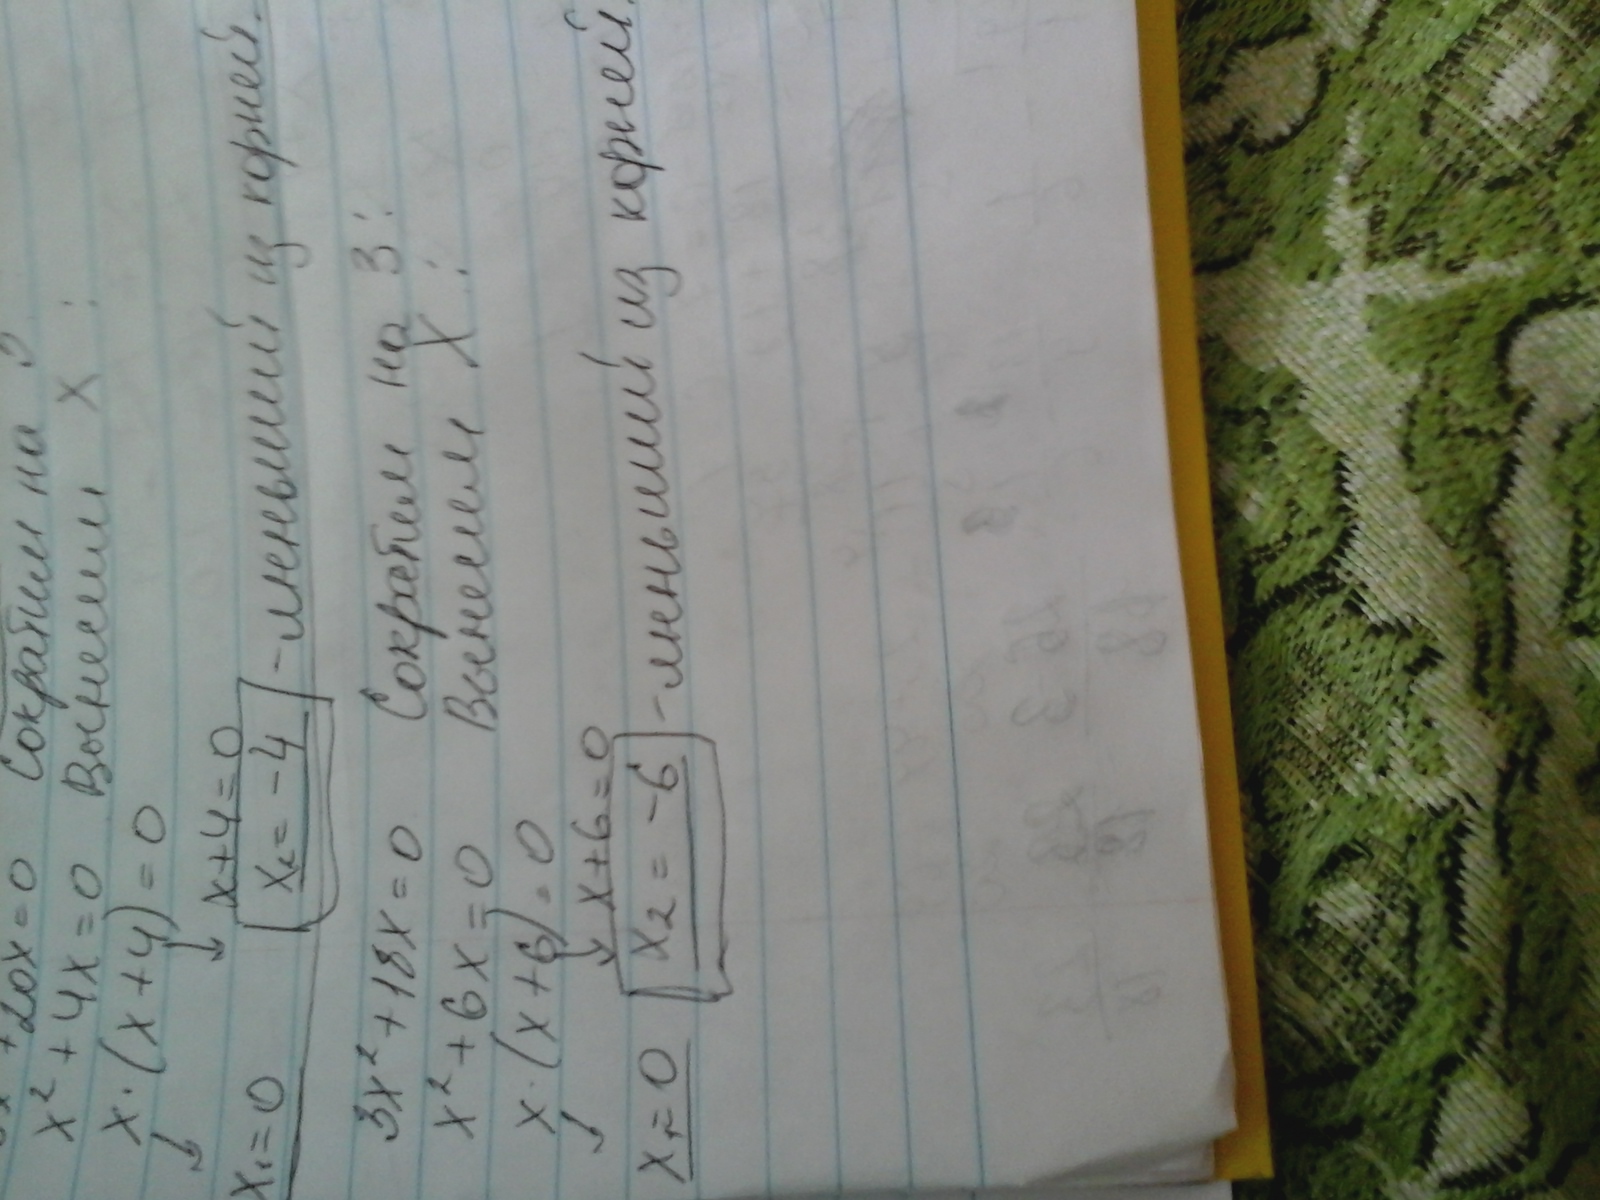 +20x=0 Сократим на
x²+4x=0 Вынесем x:
x·(x+4)=0
x+4=0
x₁=0 x₂=-4 - меньший из корней.
3x²+18x=0 Сократим на 3:
x²+6x=0 Вынесем x:
x·(x+6)=0
x+6=0
x₁=0 x₂=-6 - меньший из корней.